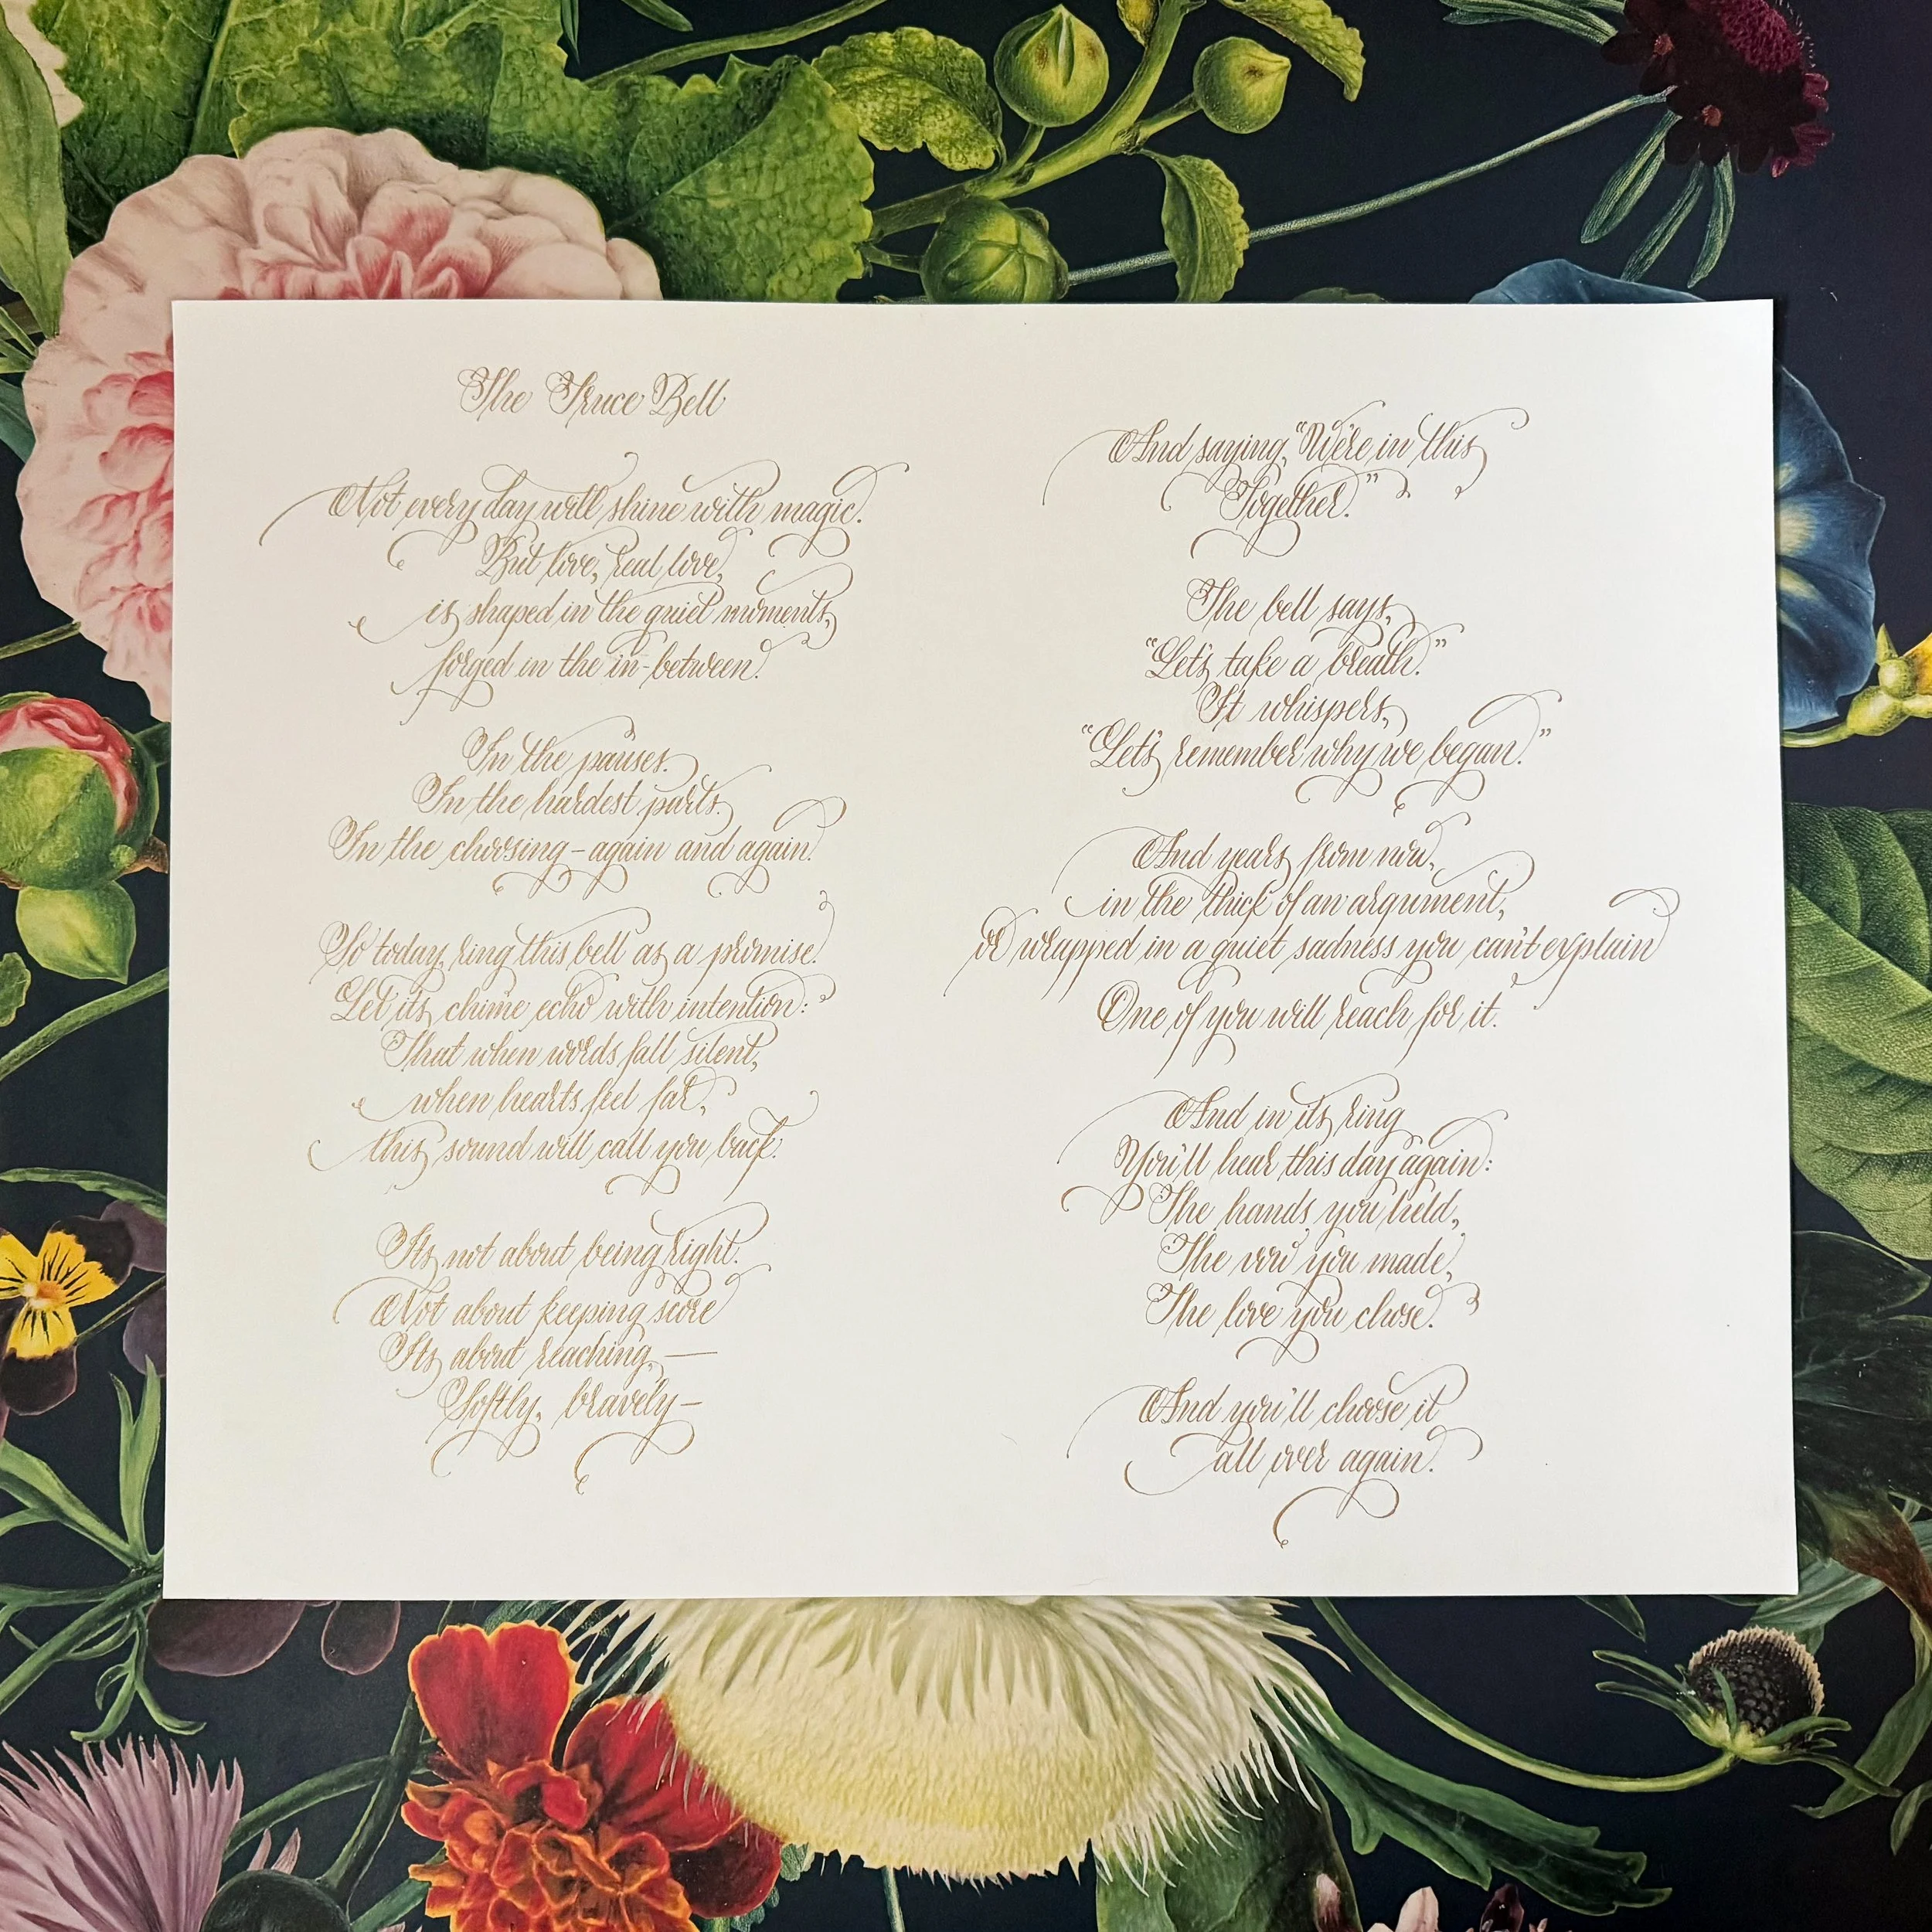 The Truce Bell
Not every day will shine with magic.
But love, real love,
is shaped in the quiet moments,
forged in the in-between.
In the pauses.
In the hardest parts.
In the choosing – again and again.
So today, ring this bell as a promise.
Let its chime echo with intention:
That when words fall silent,
when hearts feel far,
this sound will call you back.
Its not about being right.
Not about keeping score
Its about reaching, —
Softly, bravely –
And saying, "We're in this
Together."
The bell says,
"Let's take a breath."
It whispers,
"Let's remember why we began."
And years from now,
in the thick of an argument,
or wrapped in a quiet sadness you can't explain
One of you will reach for it.
And in its ring
You'll hear this day again:
The hands you held,
The vow you made,
The love you chose.
And you'll choose it
all over again.